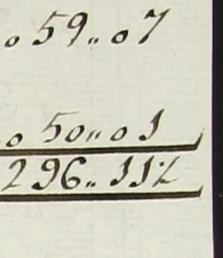 0 59,, 07
0 50,, 01
296,, 11½